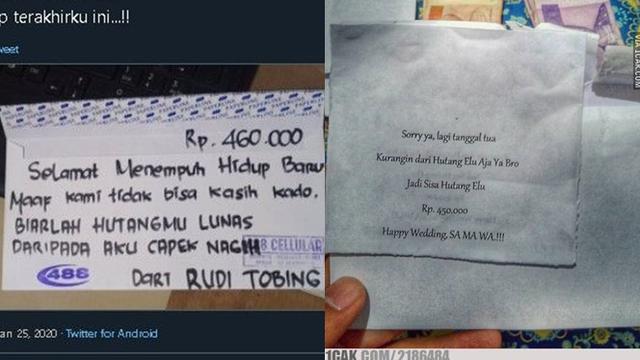 terakhirku ini...!!
Rp. 460.000
Selamat Menempuh Hidup Baru
Maaf kami tidak bisa kasih kado.
BIARLAH HUTANGMU LUNAS
DARIPADA AKU CAPEK NAGIH
CELLULAR
488
DARI RUDI TOBING
25, 2020 · Twitter for Android
Sorry ya, lagi tanggal tua
Kurangin dari Hutang Elu Aja Ya Bro
Jadi Sisa Hutang Elu
Rp. 450.000
Happy Wedding, SA MA WA.!!!
VIA 1CAK.COM
1CAK.COM/2186484